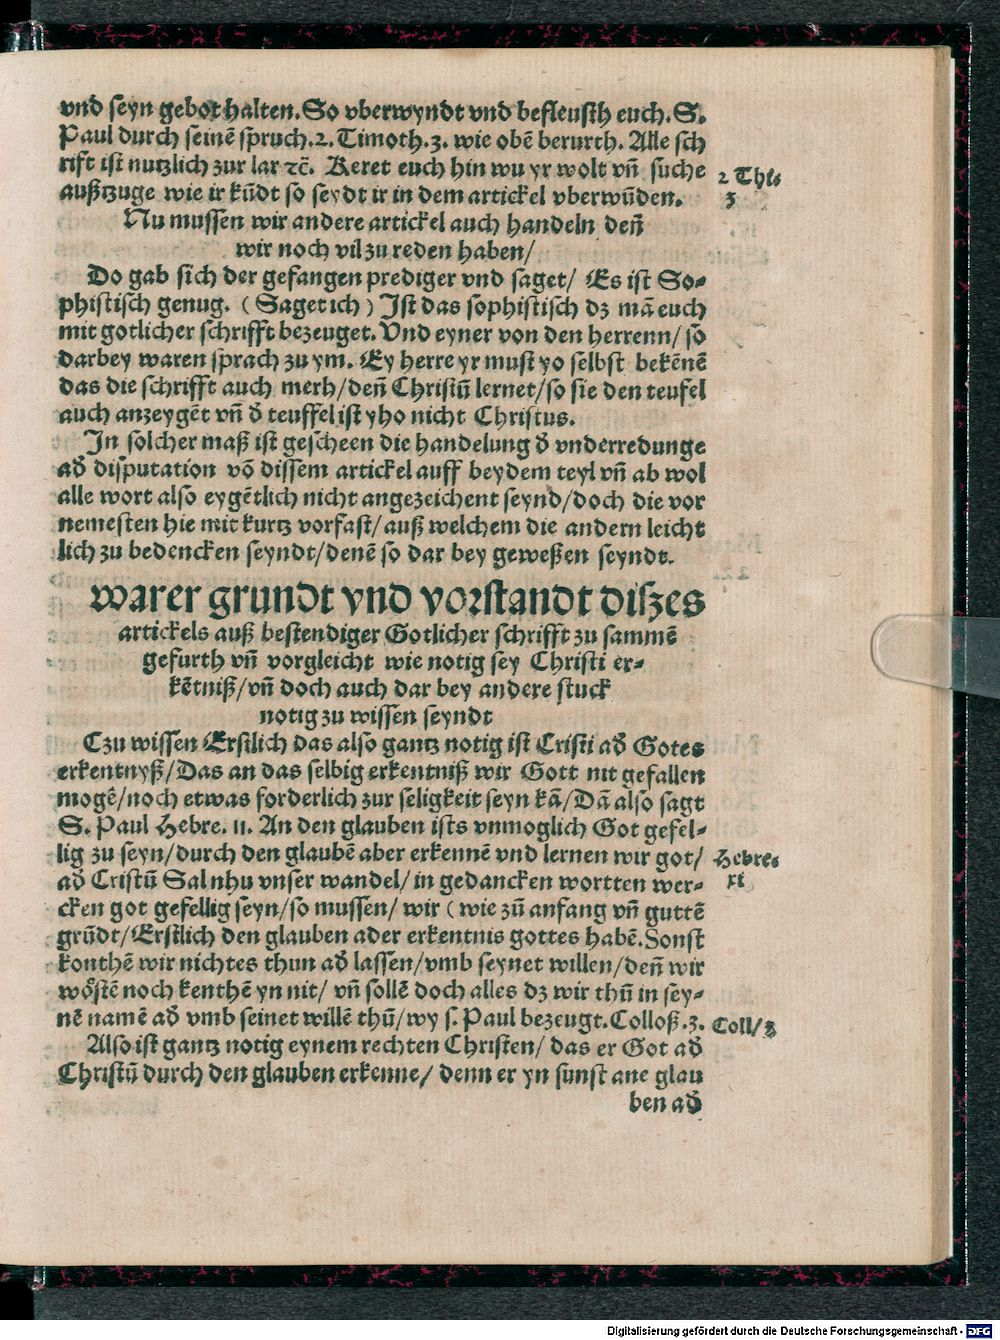 vnd seyn gebot halten. So vberwyndt vnd befleusth euch. S.
Paul durch seinē spruch. 2. Timoth. 3. wie obē berurth. Alle sch
rift ist nutzlich zur lar ꝛc̄. Keret euch hin wu yr wolt vn̄ suche
außtzuge wie ir kūdt so seydt ir in dem artickel vberwūden.
2 Thi.
3
Nu mussen wir andere artickel auch handeln den̄
wir noch vil zu reden haben/
Do gab sich der gefangen prediger vnd saget/ Es ist So-
phistisch genug. ( Saget ich ) Ist das sophistisch dz mā euch
mit gotlicher schrifft bezeuget. Vnd eyner von den herrenn/ so
darbey waren sprach zu ym. Ey herre yr must yo selbst bekēnē
das die schrifft auch merh/den̄ Christū lernet/so sie den teufel
auch anzeygēt vn̄ d̄ teuffel ist yho nicht Christus.
In solcher maß ist gescheen die handelung d̄ vnderredunge
ad̄ disputation vō dissem artickel auff beydem teyl vn̄ ab wol
alle wort also eygētlich nicht angezeichent seynd/doch die vor
nemesten hie mit kurtz vorfast/ auß welchem die andern leicht
lich zu bedencken seyndt/denē so dar bey geweßen seyndt.
warer grundt vnd vorstandt dißes
artickels auß bestendiger Gotlicher schrifft zu sammē
gefurth vn̄ vorgleicht wie notig sey Christi er-
kētniß/vn̄ doch auch dar bey andere stuck
notig zu wissen seyndt
Czu wissen Erstlich das also gantz notig ist Cristi ad̄ Gotes
erkentnyß/Das an das selbig erkentniß wir Gott nit gefallen
mogē/noch etwas forderlich zur seligkeit seyn kā/Dā also sagt
S. Paul Hebre. 11. An den glauben ists vnmoglich Got gefel-
lig zu seyn/durch den glaubē aber erkennē vnd lernen wir got/
ad̄ Cristū Sal nhu vnser wandel/ in gedancken wortten wer-
cken got gefellig seyn/so mussen/ wir ( wie zū anfang vn̄ guttē
grūdt/Erstlich den glauben ader erkentnis gottes habē. Sonst
konthē wir nichtes thun ad̄ lassen/vmb seynet willen/den̄ wir
wöstē noch kenthē yn nit/ vn̄ sollē doch alles dz wir thū in sey-
nē namē ad̄ vmb seinet willē thū/wy s. Paul bezeugt. Colloß. 3.
Hebre.
xi
Coll/ 3
Also ist gantz notig eynem rechten Christen/ das er Got ad̄
Christū durch den glauben erkenne/ denn er yn sunst ane glau
ben ad̄
Digitalisierung gefördert durch die Deutsche Forschungsgemeinschaft - DFG